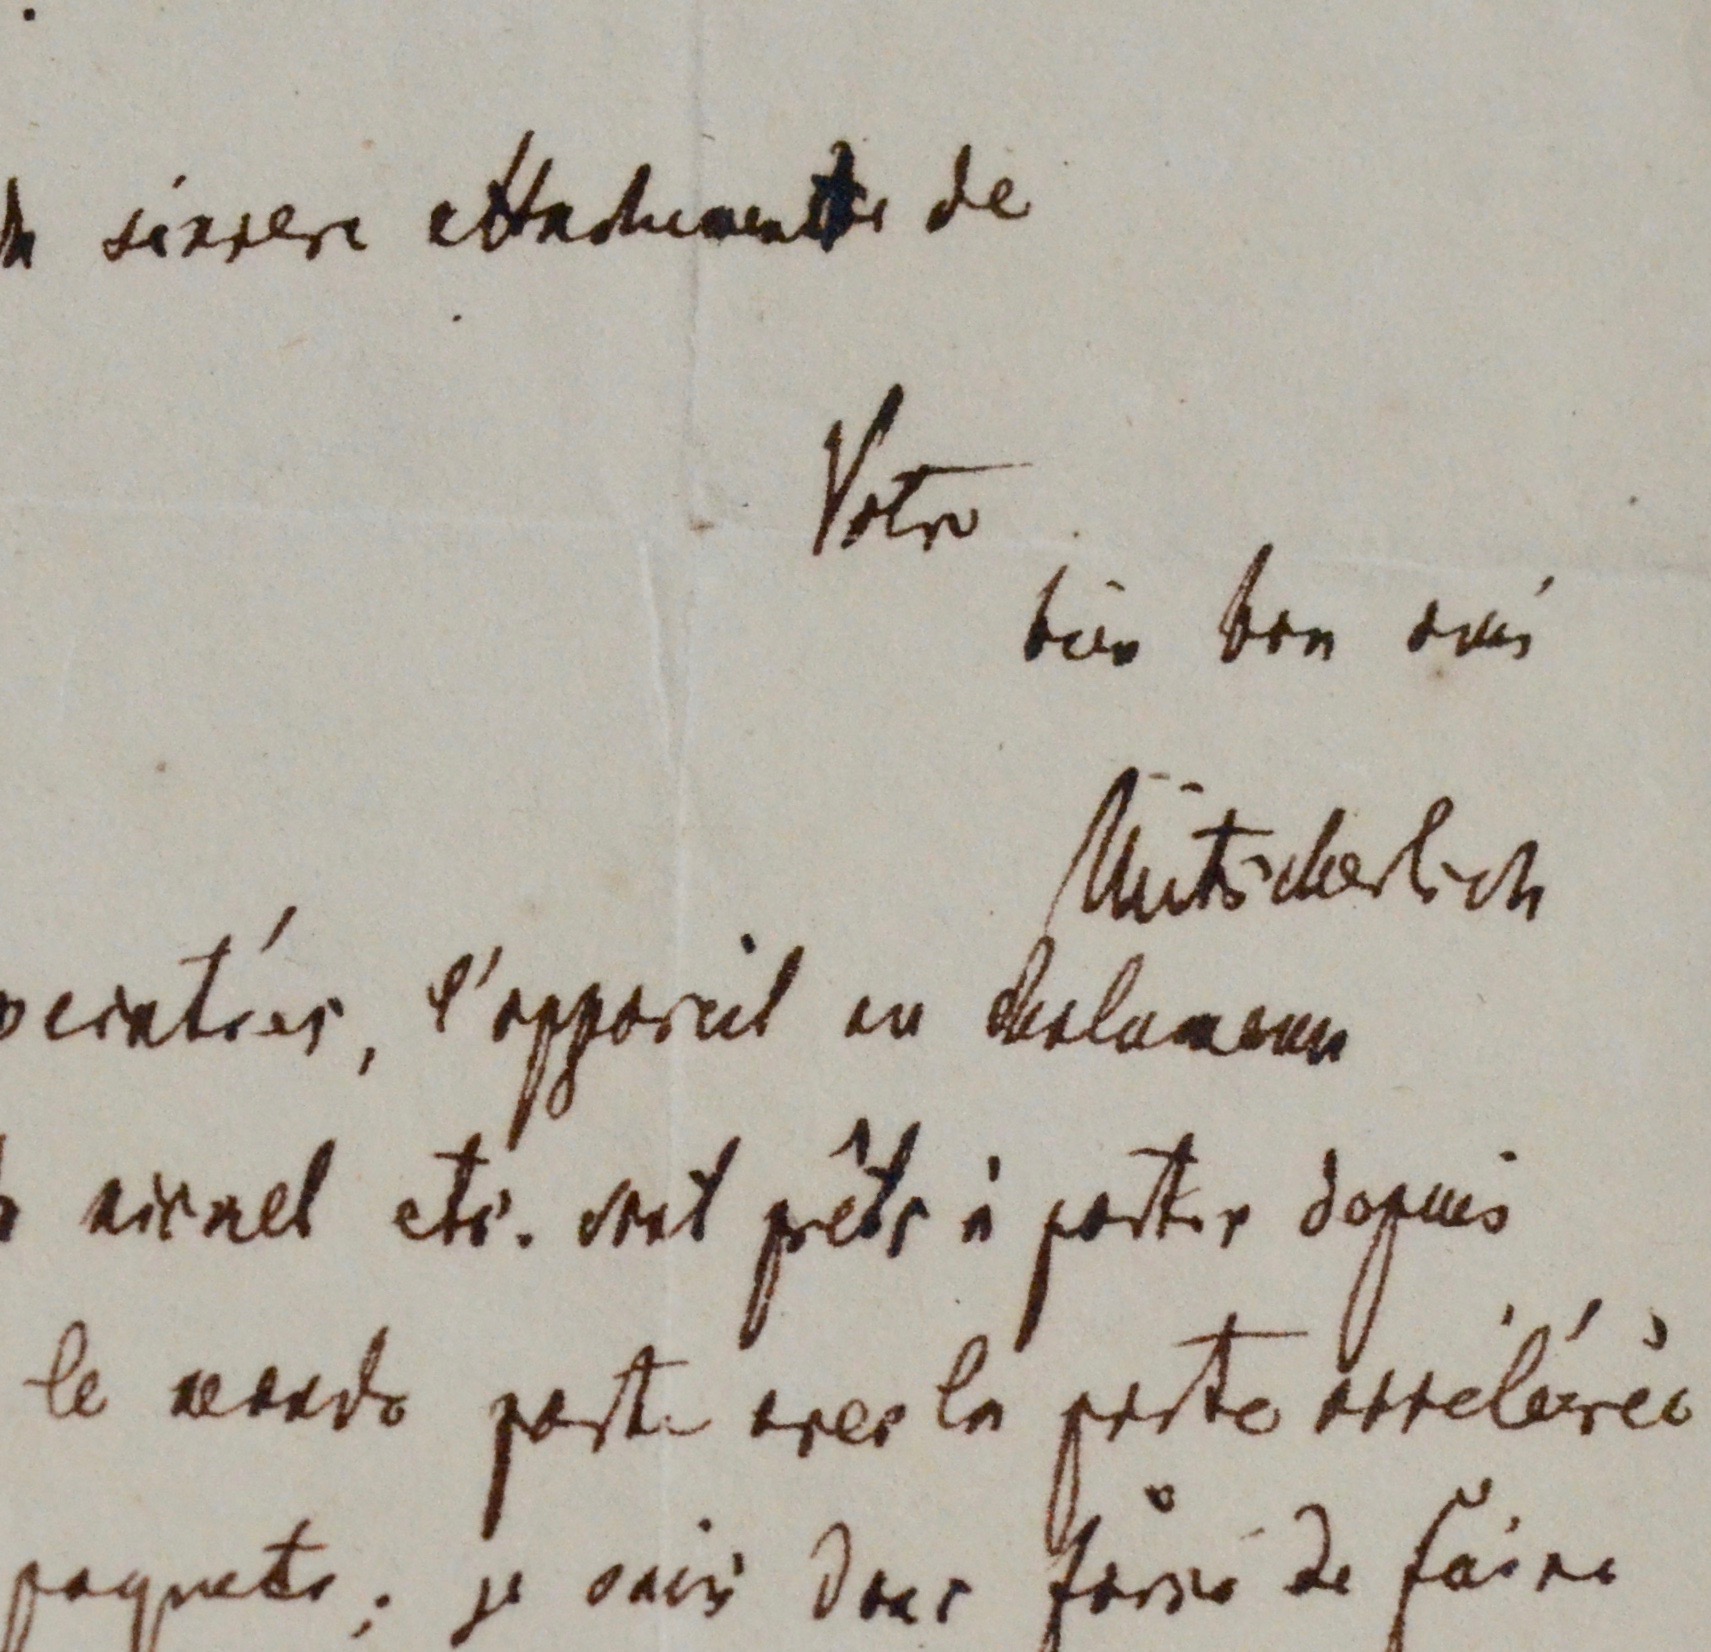 sincere attachement de
Votre
bien bon ami
Mitscherlich
l'appareil au chalumeau
nickel etc. sont prêts à partir depuis
le monde parte avec la poste accélérée
paquets; je suis donc forcé de faire